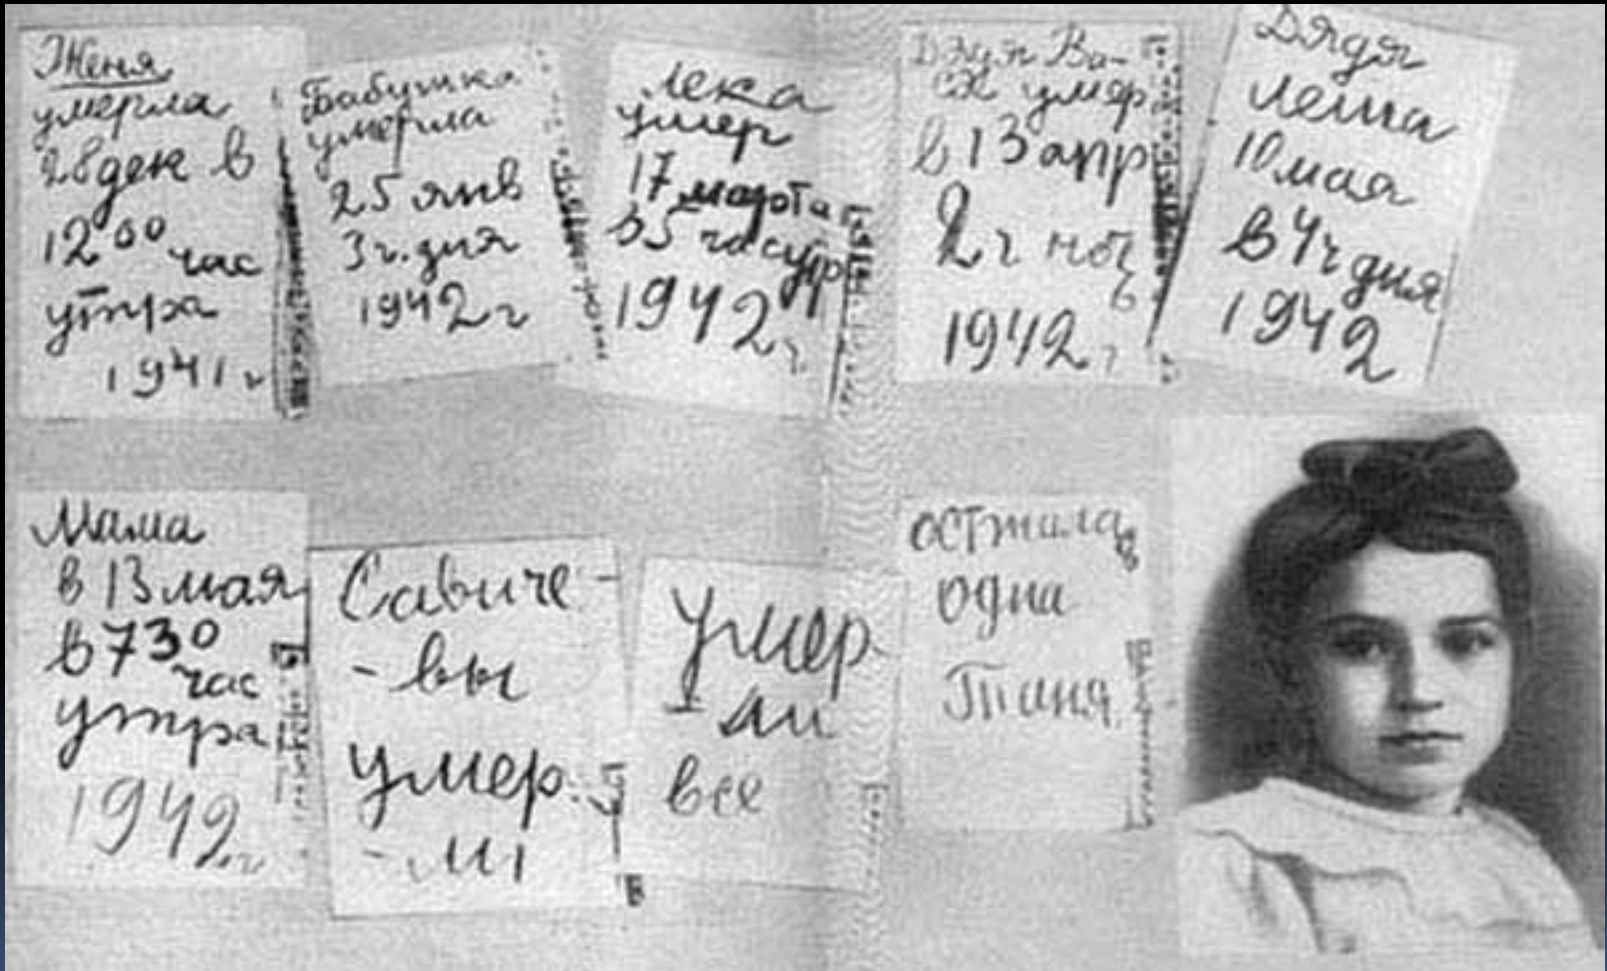 Женя
умерла
28 дек в
12 00 час
утра
1941 г
Бабушка
умерла
25 янв
3 ч. дня
1942 г
Лека
умер
17 марта
в 5 час утр
1942 г.
Дядя Ва-
ся умер
в 13 апр
2 ч ноч
1942 г
Дядя
Леша
10 мая
в 4 ч дня
1942
Мама
в 13 мая
в 7 30
час
утра
1942 г
Савиче-
-вы
умер
-ли
Умер-
-ли
все
осталась
одна
Таня.